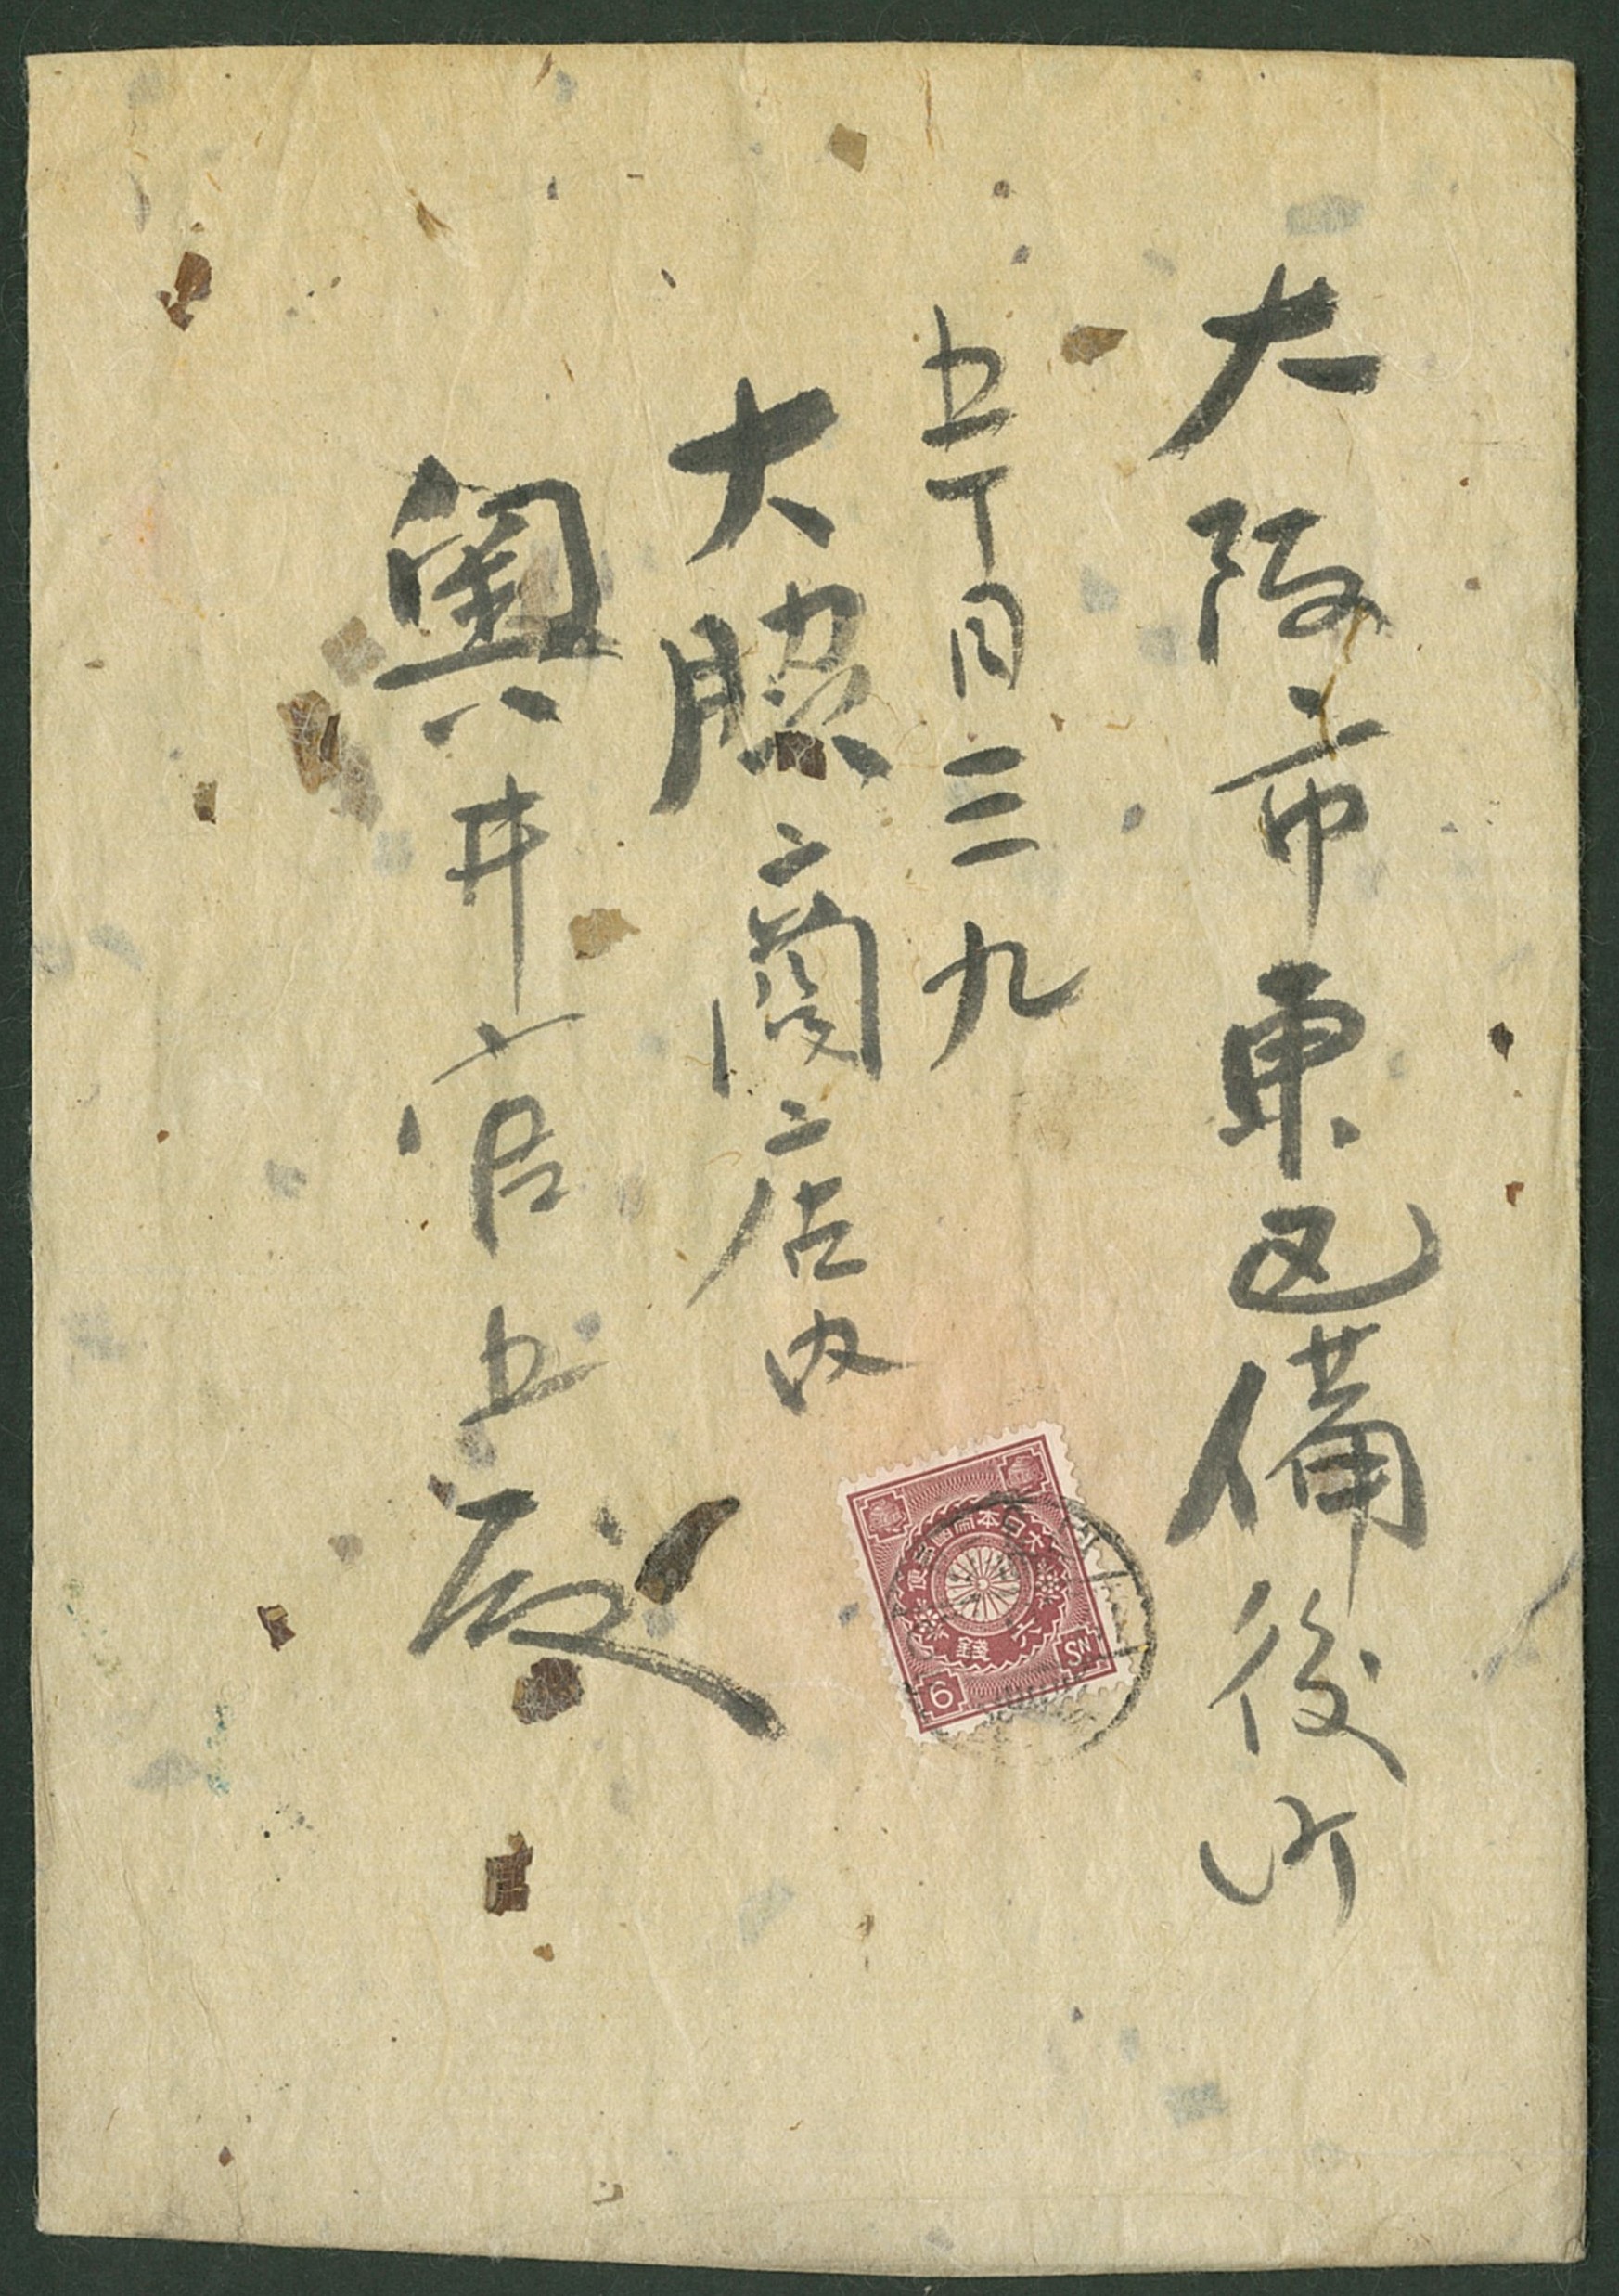 大阪市東区備後町
五丁目三九
大照商店内
奥井宦五殿
大日本帝國郵便
六錢
6 SN